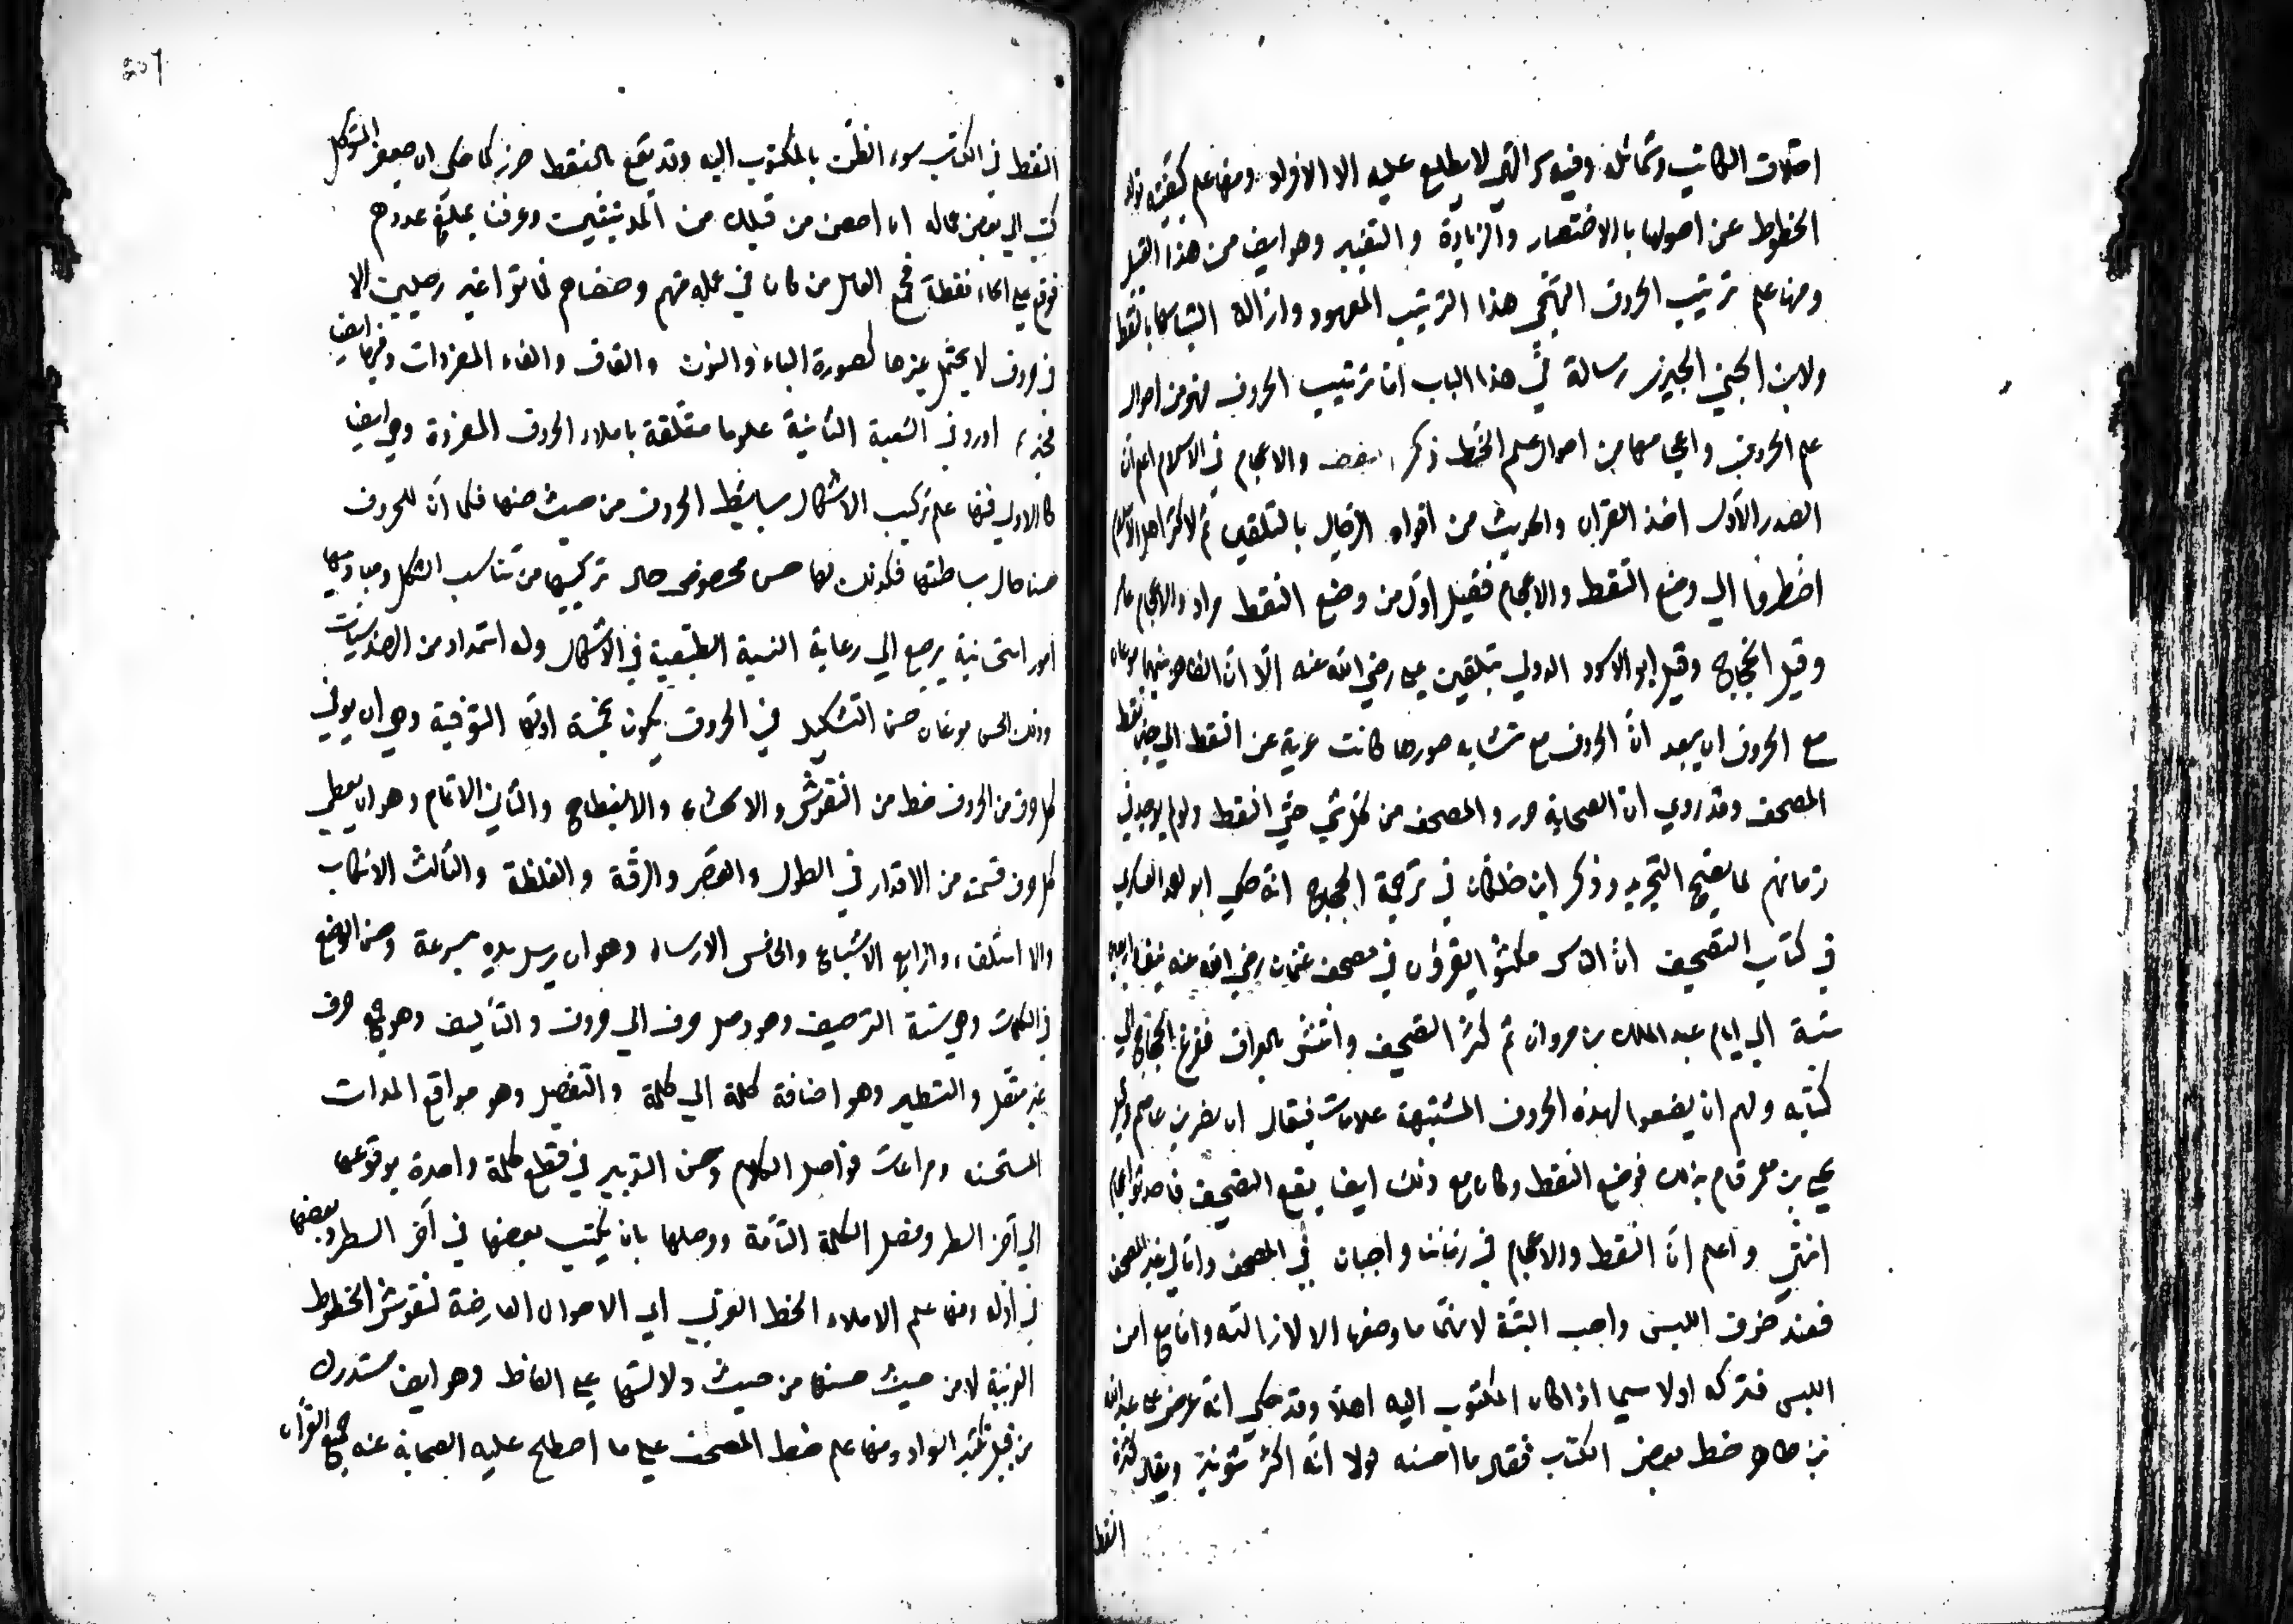 اختلاف الكاتب وشمائله وفيه سر الهي لا يطلع عليه الا الافراد ومنها علم كيفية تولد
الخطوط عن اصولها بالاختصار والزيادة والتغيير وهو ايضا من هذا القبيل
ومنها علم ترتيب الحروف التهجي هذا الترتيب المعهود وازالة التباسها بالنقط
ولابن الجني الجيزي رسالة في هذا الباب اما ترتيب الحروف فهو من احوال
علم الحروف واعجامها من احوال علم الخط ذكر النقط والاعجام في الاسلام اعلم ان
الصدر الاول اخذ القران والحديث من افواه الرجال بالتلقين ثم لما كثر اهل الاسلام
اضطروا الي وضع النقط والاعجام فقيل اول من وضع النقط مراد والاعجام عامر
وقيل الحجاج وقيل ابو الاسود الدولي بتلقين علي رضي الله عنه الا ان الظاهر انهما موضوعان
مع الحروف ان يبعد ان الحروف مع تشابه صورها كانت عرية عن النقط الي حين نقط
المصحف وقد روي ان الصحابة جردوا المصحف من كل شي حتي النقط ولو لم يوجد في
زمانهم لما يصح التجريد وذكر ابن خلكان في ترجمة الحجاج انه حكي ابو احمد العسكري
في كتاب التصحيف ان الناس مكثوا يقرؤن في مصحف عثمان رضي الله عنه نيفا واربعين
سنة الي ايام عبد الملك بن مروان ثم كثر التصحيف وانتشر بالعراق ففزع الحجاج الي
كتابه وسالهم ان يضعوا لهذه الحروف المشتبهة علامات فيقال ان نصر بن عاصم وقيل
يحيي بن يعمر قام بذلك فوضع النقط وكان مع ذلك ايضا يقع التصحيف فاحدثوا الاعجام
انتهي واعلم ان النقط والاعجام في زماننا واجبان في المصحف واما في غير المصحف
فعند خوف اللبس واجب البتة لانهما ما وضعا الا لازالته واما مع امن
اللبس فتركه اولا سيما اذا كان المكتوب اليه اهلا وقد حكي انه عرض علي عبد الله
بن طاهر خط بعض الكتاب فقال ما احسنه لولا انه اكثر شونيزه ويقال كثرة
النقط
النقط في الكتاب سوء الظن بالمكتوب اليه وقد يقع بالنقط ضرر كما حكي ان جعفر المتوكل
كتب الي بعض عماله ان احص من قبلك من المدنيين وعرفنا بمبلغ عددهم
فوقع علي الحاء نقطة فجمع العامل من كان في عمله منهم وخصاهم فماتوا غير رجلين الا
في حروف لا يحتمل غيرها كصورة الياء والنون والقاف والفاء المفردات وفيها ايضا
مخير ثم اورد في الشعبة الثانية علوما متعلقة باملاء الحروف المفردة وهي ايضا
كالاولي فمنها علم تركيب الاشكال بسايط الحروف من حيث حسنها فكما ان للحروف
حسنا حال بساطتها فكذلك لها حسن مخصوص حال تركيبها من تناسب الشكل ومباديها
امور استحسانية يرجع الي رعاية النسبة الطبيعية في الاشكال وله استمداد من الهندسيات
وذلك الحسن نوعان حسن التشكيل في الحروف يكون بخمسة اولها التوفية وهي ان يوفي
كل حرف من الحروف حظ من التقوش والانحناء والانبطاح والثاني الاتمام وهو ان يعطي
كل حرف قسمة من الاقدار في الطول والقصر والرقة والغلظة والثالث الانكباب
والاستلقاء والرابع الاشباع والخامس الارسال وهو ان يرسل يده بسرعة وحسن الوضع
في الكلمات وهي ستة الترصيف وهو وصل حرف الي حرف والتاليف وهو جمع حرف
غير متصل والتسطير وهو اضافة كلمة الي كلمة والتفصيل وهو مواقع المدات
المستحسنة ومراعات فواصل الكلام وحسن التدبير في قطع كلمة واحدة بوقوعها
الي آخر السطر وفصل الكلمة التامة ووصلها بان يكتب بعضها في آخر السطر وبعضها
في اوله ومنها علم الاملاء الخط العربي اي الاحوال العارضة لنقوش الخطوط
العربية لا من حيث حسنها من حيث دلالتها علي الفاظ وهو ايضا مستدرك
من قبيل تكثير السواد ومنها علم خط المصحف علي ما اصطلح عليه الصحابة عند جمع القرآن